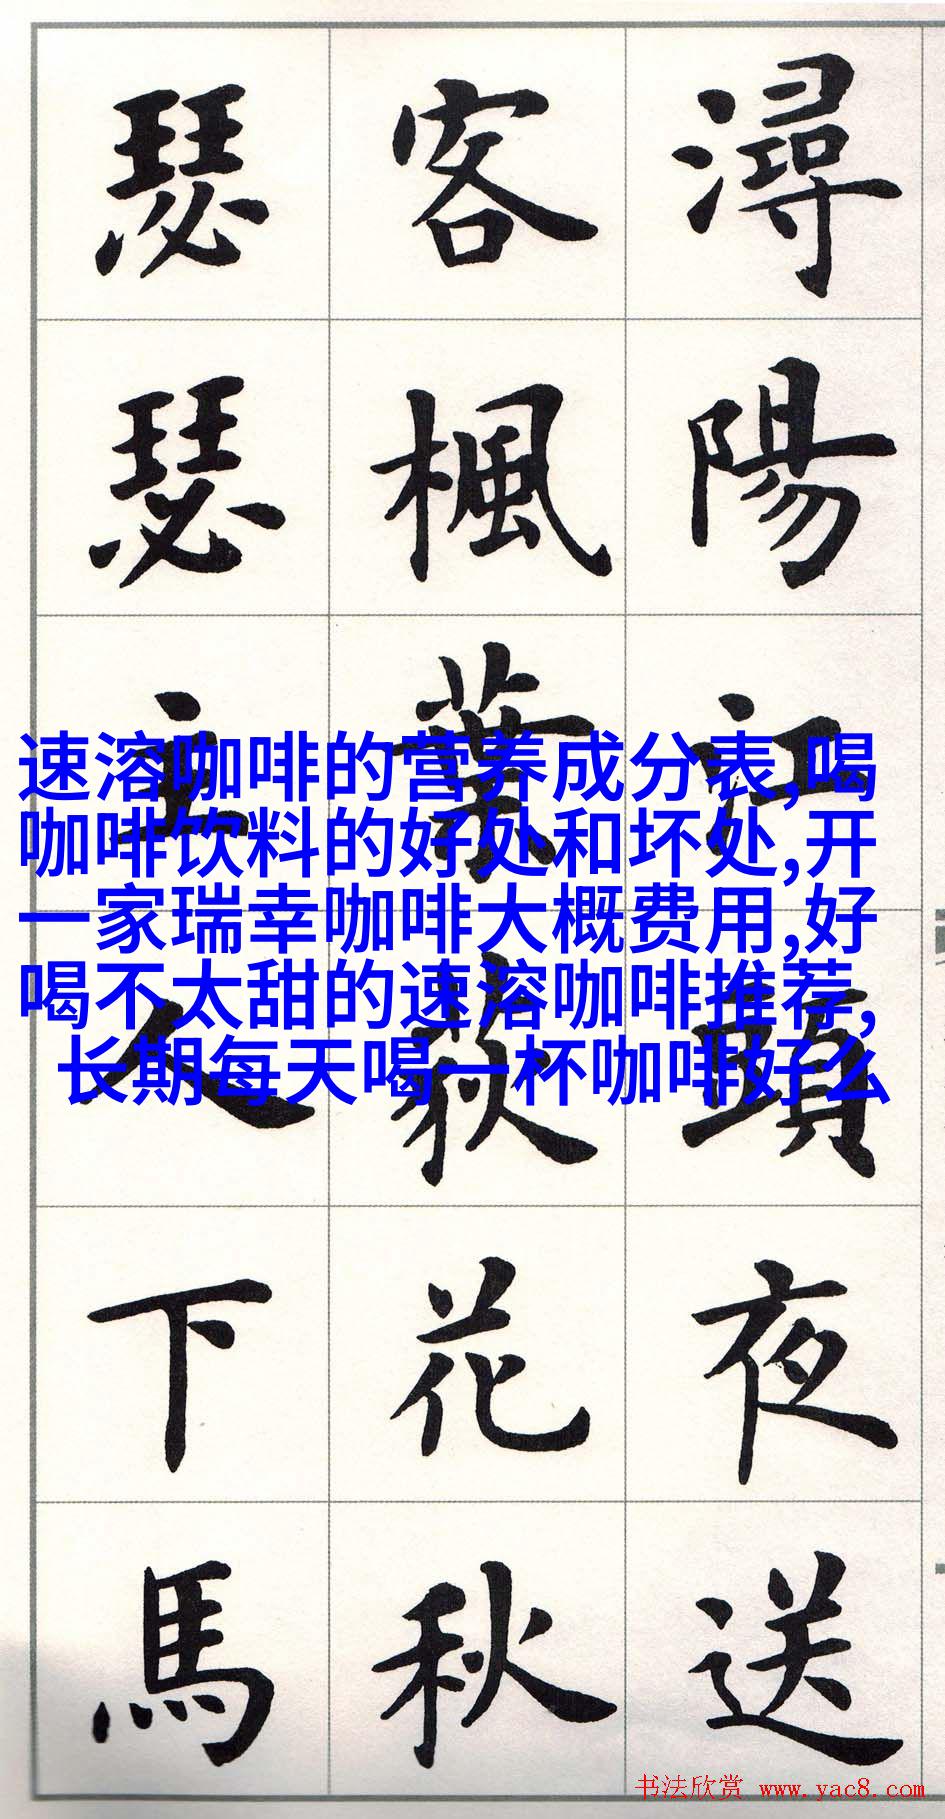 潯陽江頭夜送
客楓葉荻花秋
瑟瑟主人下馬
速溶咖啡的营养成分表,喝
咖啡饮料的好处和坏处,开
一家瑞幸咖啡大概费用,好
喝不太甜的速溶咖啡推荐,
长期每天喝一杯咖啡好么
书法欣赏 www.yac8.com